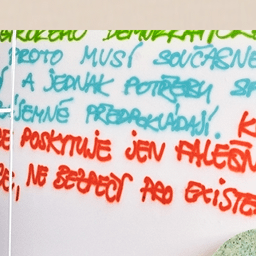 DEMOKRATICK
PROTO MUSÍ SOUČASNĚ
A JEDNAK POTŘEBU
PŘEDPOKLÁDAJÍ. K
POSKYTUJE JEN FALEŠN
NE BEZPEČÍ PRO EXISTE